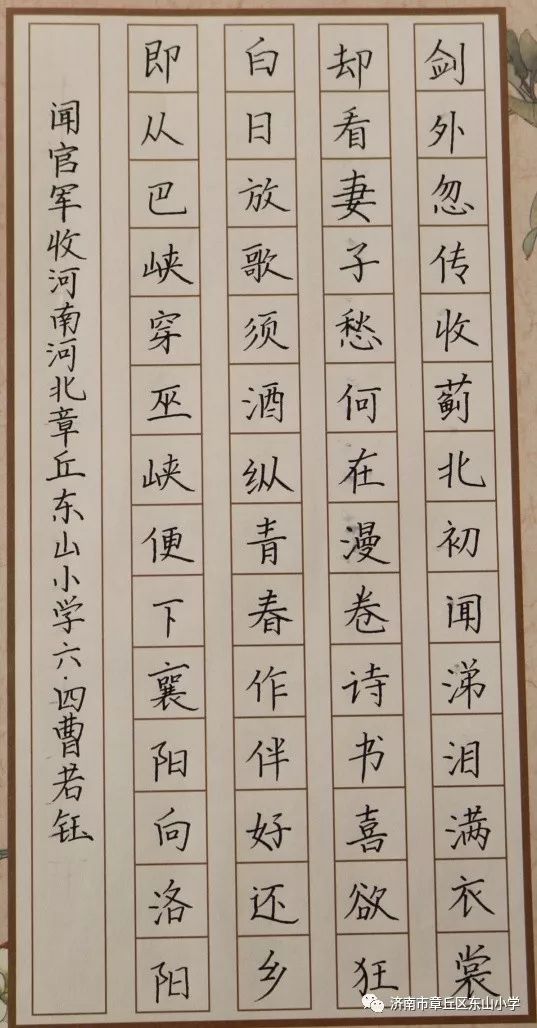 剑外忽传收蓟北初闻涕泪满衣裳
却看妻子愁何在漫卷诗书喜欲狂
白日放歌须酒纵青春作伴好还乡
即从巴峡穿巫峡便下襄阳向洛阳
闻官军收河南河北章丘东山小学六.四曹若钰
济南市章丘区东山小学